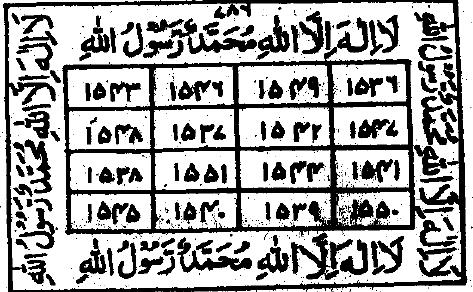 ۷۸۶
لا اله الا الله محمد رسول الله
لا اله الا الله محمد رسول الله
لا اله الا الله محمد رسول الله
۱۵۴۳ ۱۵۴۶ ۱۵۴۹ ۱۵۳۶
۱۵۴۸ ۱۵۳۷ ۱۵۴۲ ۱۵۴۷
۱۵۳۸ ۱۵۵۱ ۱۵۴۴ ۱۵۴۱
۱۵۴۵ ۱۵۴۰ ۱۵۳۹ ۱۵۵۰
لا اله الا الله محمد رسول الله